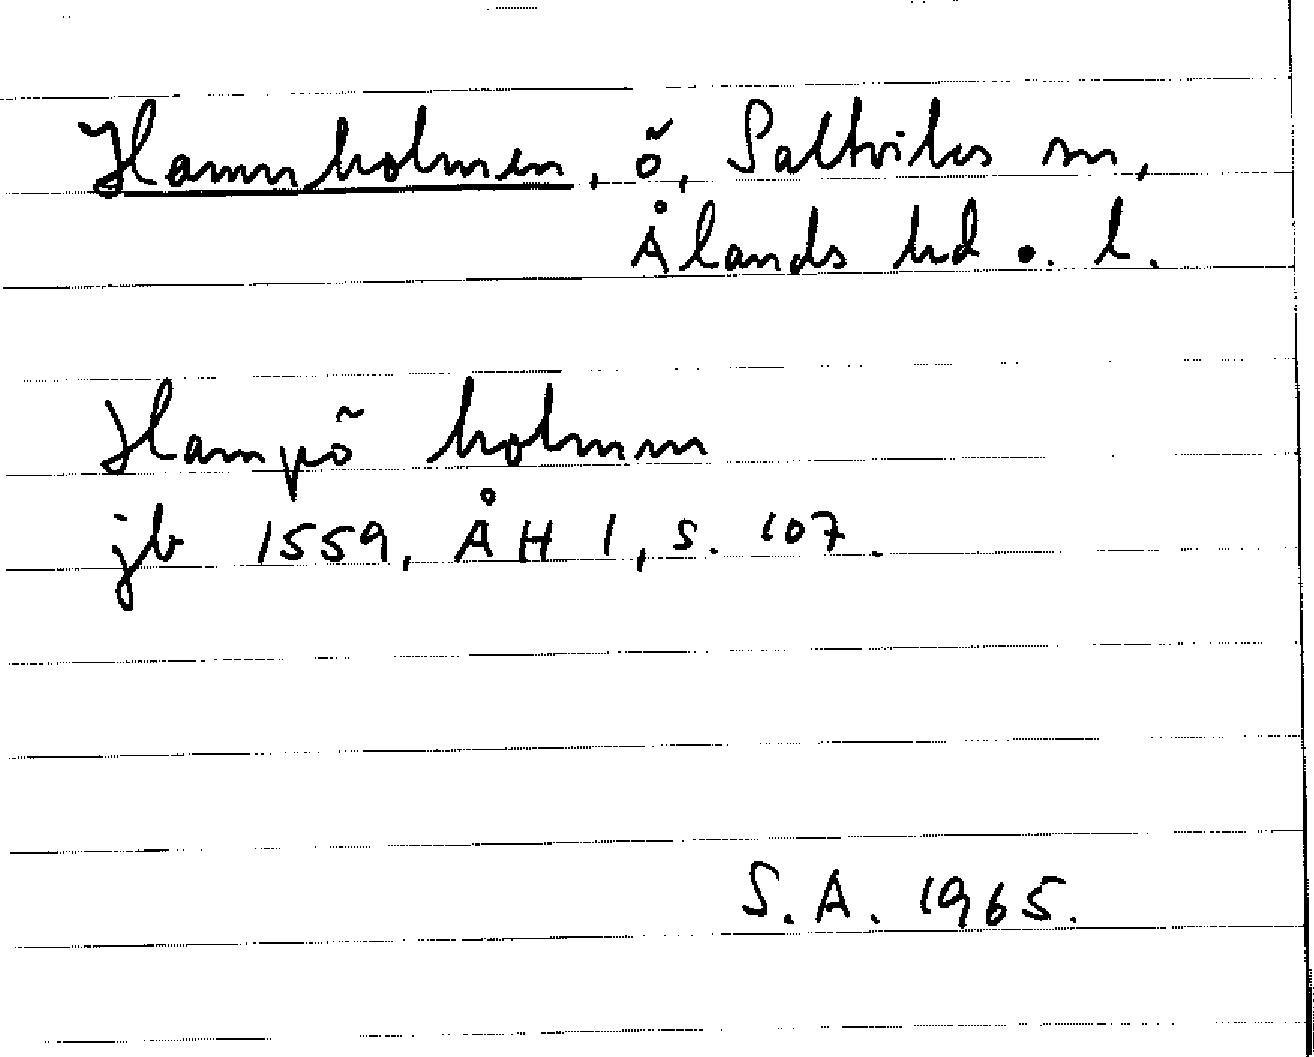 Hamnholmen, ö, Saltviks sn,
Ålands hd o. l.
Hampö holmen
jb 1559, ÅH 1, s. 107.
S. A. 1965.